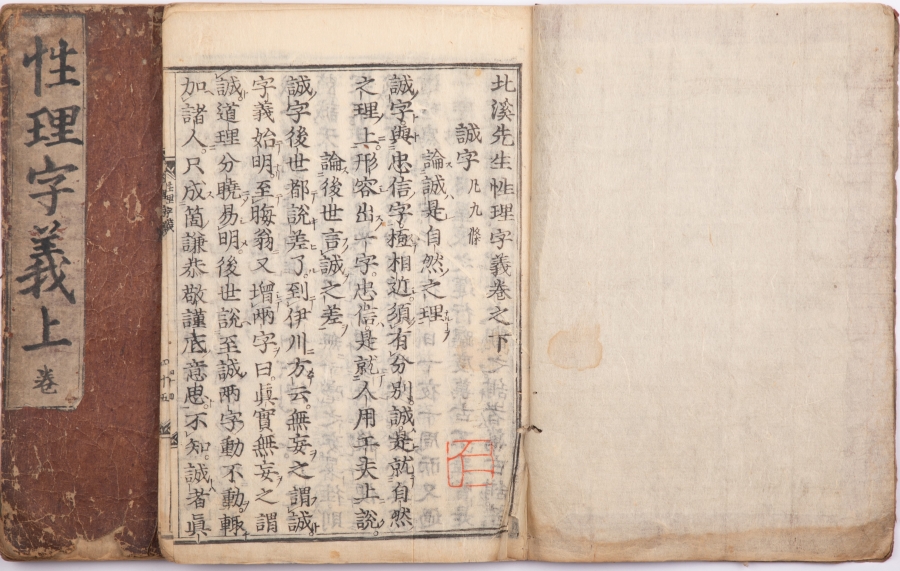 性理字義上
卷
北溪先生性理字義卷之下
誠字 凡九條
論誠是自然之理
誠字與忠信字極相近須有分別誠是就自然
之理上形容出一字忠信是就人用工夫上說
論後世言誠之差
誠字後世都說差了到伊川方云無妄之謂誠
字義始明至晦翁又增兩字曰眞實無妄之謂
誠道理分曉易明後世說至誠兩字動不動輒
加諸人只成箇謙恭敬謹底意思不知誠者眞
性理字義